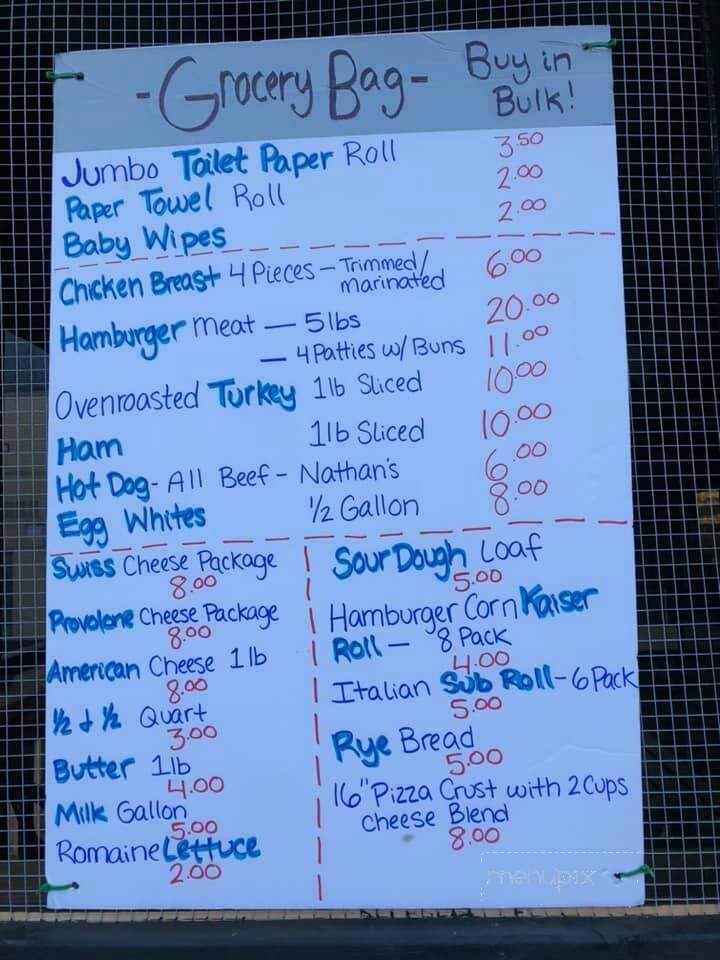 - Grocery Bag - Buy in
Bulk!
Jumbo Toilet Paper Roll 3.50
Paper Towel Roll 2.00
Baby Wipes 2.00
Chicken Breast 4 Pieces - Trimmed/ 6.00
marinated
Hamburger meat — 5lbs 20.00
— 4 Patties w/ Buns 11.00
Ovenroasted Turkey 1lb Sliced 10.00
Ham 1lb Sliced 10.00
Hot Dog - All Beef - Nathan's 6.00
Egg Whites 1/2 Gallon 8.00
Swiss Cheese Package
8.00
Provolone Cheese Package
8.00
American Cheese 1lb
8.00
1/2 & 1/2 Quart
3.00
Butter 1lb
4.00
Milk Gallon
5.00
Romaine Lettuce
2.00
Sour Dough Loaf
5.00
Hamburger Corn Kaiser
Roll — 8 Pack
4.00
Italian Sub Roll - 6 Pack
5.00
Rye Bread
5.00
16" Pizza Crust with 2 Cups
cheese Blend
8.00
menupix